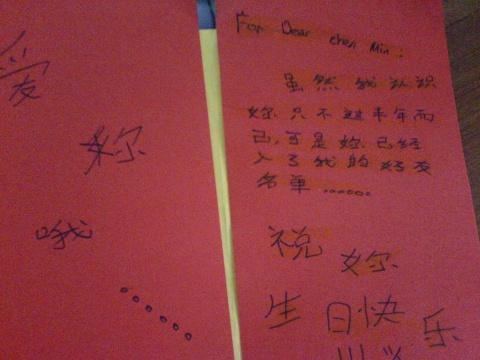 爱
妳
哦
......
For Dear chen Min:
虽然我认识
妳只不过半年而
已,可是妳已经
入了我的好友
名单......
祝
妳
生日快乐